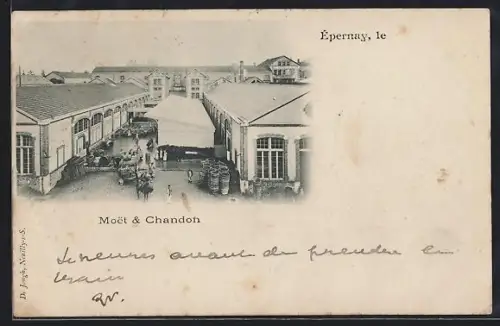 Épernay, le
Moët & Chandon
heures avant de prendre le
train
D. Jongh, Neuilly-s-S.